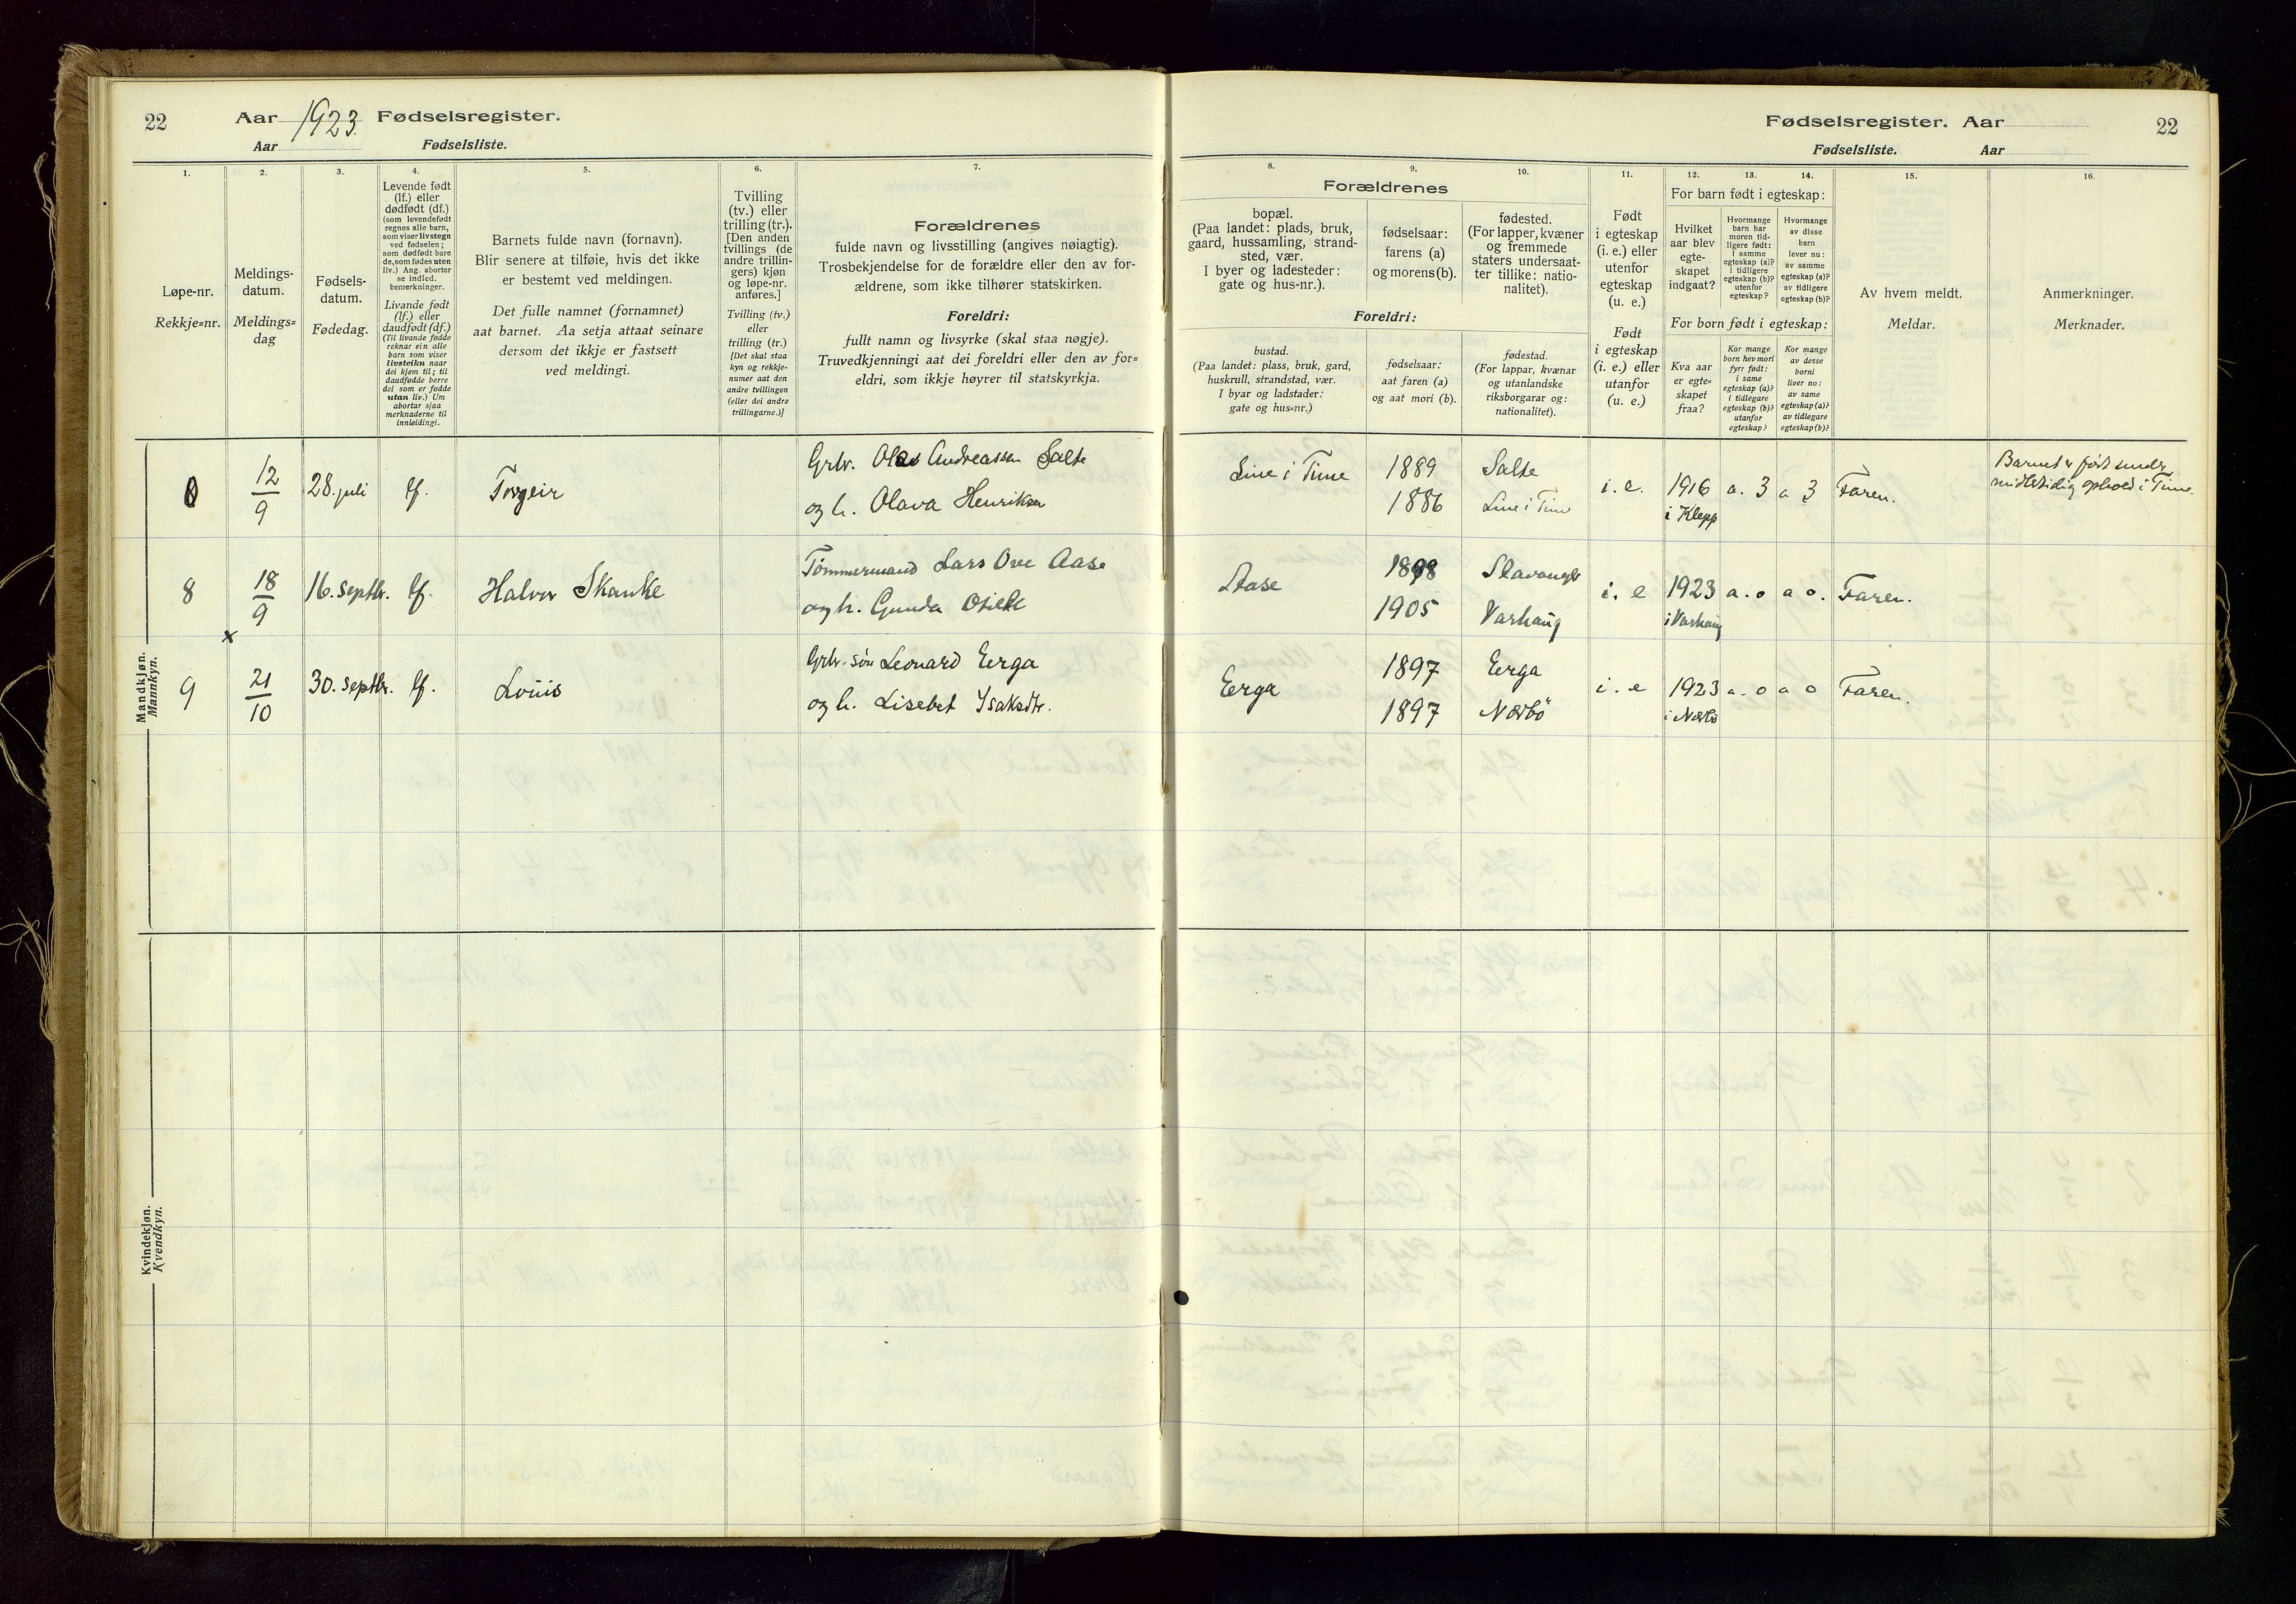 22
Aar 1923. Fødselsregister.
Aar Fødselsliste.
1.
2.
3.
4.
5.
6.
7.
Løpe-nr.
Rekkje=nr.
Meldings-
datum.
Meldings=
dag
Fødsels-
datum.
Fødedag.
Levende født
(lf.) eller
dødfødt (df.)
(som levendefødt
regnes alle barn,
som viser livstegn
ved fødselen;
som dødfødt bare
de, som fødes uten
liv.) Ang. aborter
se indled.
bemerkninger.
Livande født
(lf.) eller
daudfødt (df.)
(Til livande fødde
reknar ein alle
barn som viser
livsteikn naar
dei kjem til; til
daudfødde berre
dei som er fødde
utan liv.) Um
abortar sjaa
merknaderne til
innleidingi.
Barnets fulde navn (fornavn).
Blir senere at tilføie, hvis det ikke
er bestemt ved meldingen.
Det fulle namnet (fornamnet)
aat barnet. Aa setja attaat seinare
dersom det ikkje er fastsett
ved meldingi.
Tvilling
(tv.) eller
trilling (tr.).
[Den anden
tvillings (de
andre trillin-
gers) kjøn
og løpe-nr.
anføres.]
Tvilling (tv.)
eller
trilling (tr.)
[Det skal staa
kyn og rekkje-
numer aat den
andre tvillingen
(eller dei andre
trillingarne.)]
Forældrenes
fulde navn og livsstilling (angives nøiagtig).
Trosbekjendelse for de forældre eller den av for-
ældrene, som ikke tilhører statskirken.
Foreldri:
fullt namn og livsyrke (skal staa nøgje).
Truvedkjenningi aat dei foreldri eller den av for=
eldri, som ikkje høyrer til statskyrkja.
Mandkjøn.
Mannkyn.
12/9 28. juli lf. Torgeir
Grbr. Olav Andreassen Salte
og h. Olava Henriksen
8 18/9 16. septbr. lf. Halvor Skanke
Tømmermand Lars Ove Aase
og h. Gunda
x
9 21/10 30. septbr. lf. Louis
Grbr. søn Leonard Eerga
og h. Lisebet Isaksdtr.
Kvindekjøn.
Kvendkyn.
Fødselsregister. Aar
22
Fødselsliste. Aar
8.
9.
10.
11.
12.
13.
14.
15.
16.
Forældrenes
bopæl.
(Paa landet: plads, bruk,
gaard, hussamling, strand-
sted, vær.
I byer og ladesteder:
gate og hus-nr.).
fødselsaar:
farens (a)
og morens (b).
fødested.
(For lapper, kvæner
og fremmede
staters undersaat-
ter tillike: natio-
nalitet).
Foreldri:
bustad.
(Paa landet: plass, bruk, gard,
huskrull, strandstad, vær.
I byar og ladstader:
gate og hus=nr.)
fødselsaar:
aat faren (a)
og aat mori (b).
fødestad.
(For lappar, kvænar
og utanlandske
riksborgarar og:
nationalitet).
Født
i egteskap
(i. e.) eller
utenfor
egteskap
(u. e.)
Født
i egteskap
(i. e.) eller
utanfor
(u. e.)
For barn født i egteskap:
Hvilket
aar blev
egte-
skapet
indgaat?
Hvormange
barn har
moren tid-
ligere født:
i samme
egteskap (a)?
i tidligere
egteskap (b)?
utenfor
egteskap?
Hvormange
av disse
barn
lever nu:
av samme
egteskap (a)?
av tidligere
egteskap (b)?
For born født i egteskap:
Kva aar
er egte=
skapet
fraa?
Kor mange
born hev mori
fyrr født:
i same
egteskap (a)?
i tidlegare
egteskap (b)?
utanfor
egteskap?
Kor mange
av desse
borni
liver no:
av same
egteskap (a)?
av tidlegare
egteskap (b)?
Av hvem meldt.
Meldar.
Anmerkninger.
Merknader.
Line i Time 1889 Salte i. e. 1916 a. 3 a 3 Faren.
1886 Line i Time i Klepp
Barnet er født under
midletidig ophold i Time.
Aase 1898 Stavanger i. e 1923 a. o a o. Faren.
1905 Varhaug i Varhaug
Eerga 1897 Eerga i. e 1923 a. o a o Faren.
1897 Nærbö i Nærbö